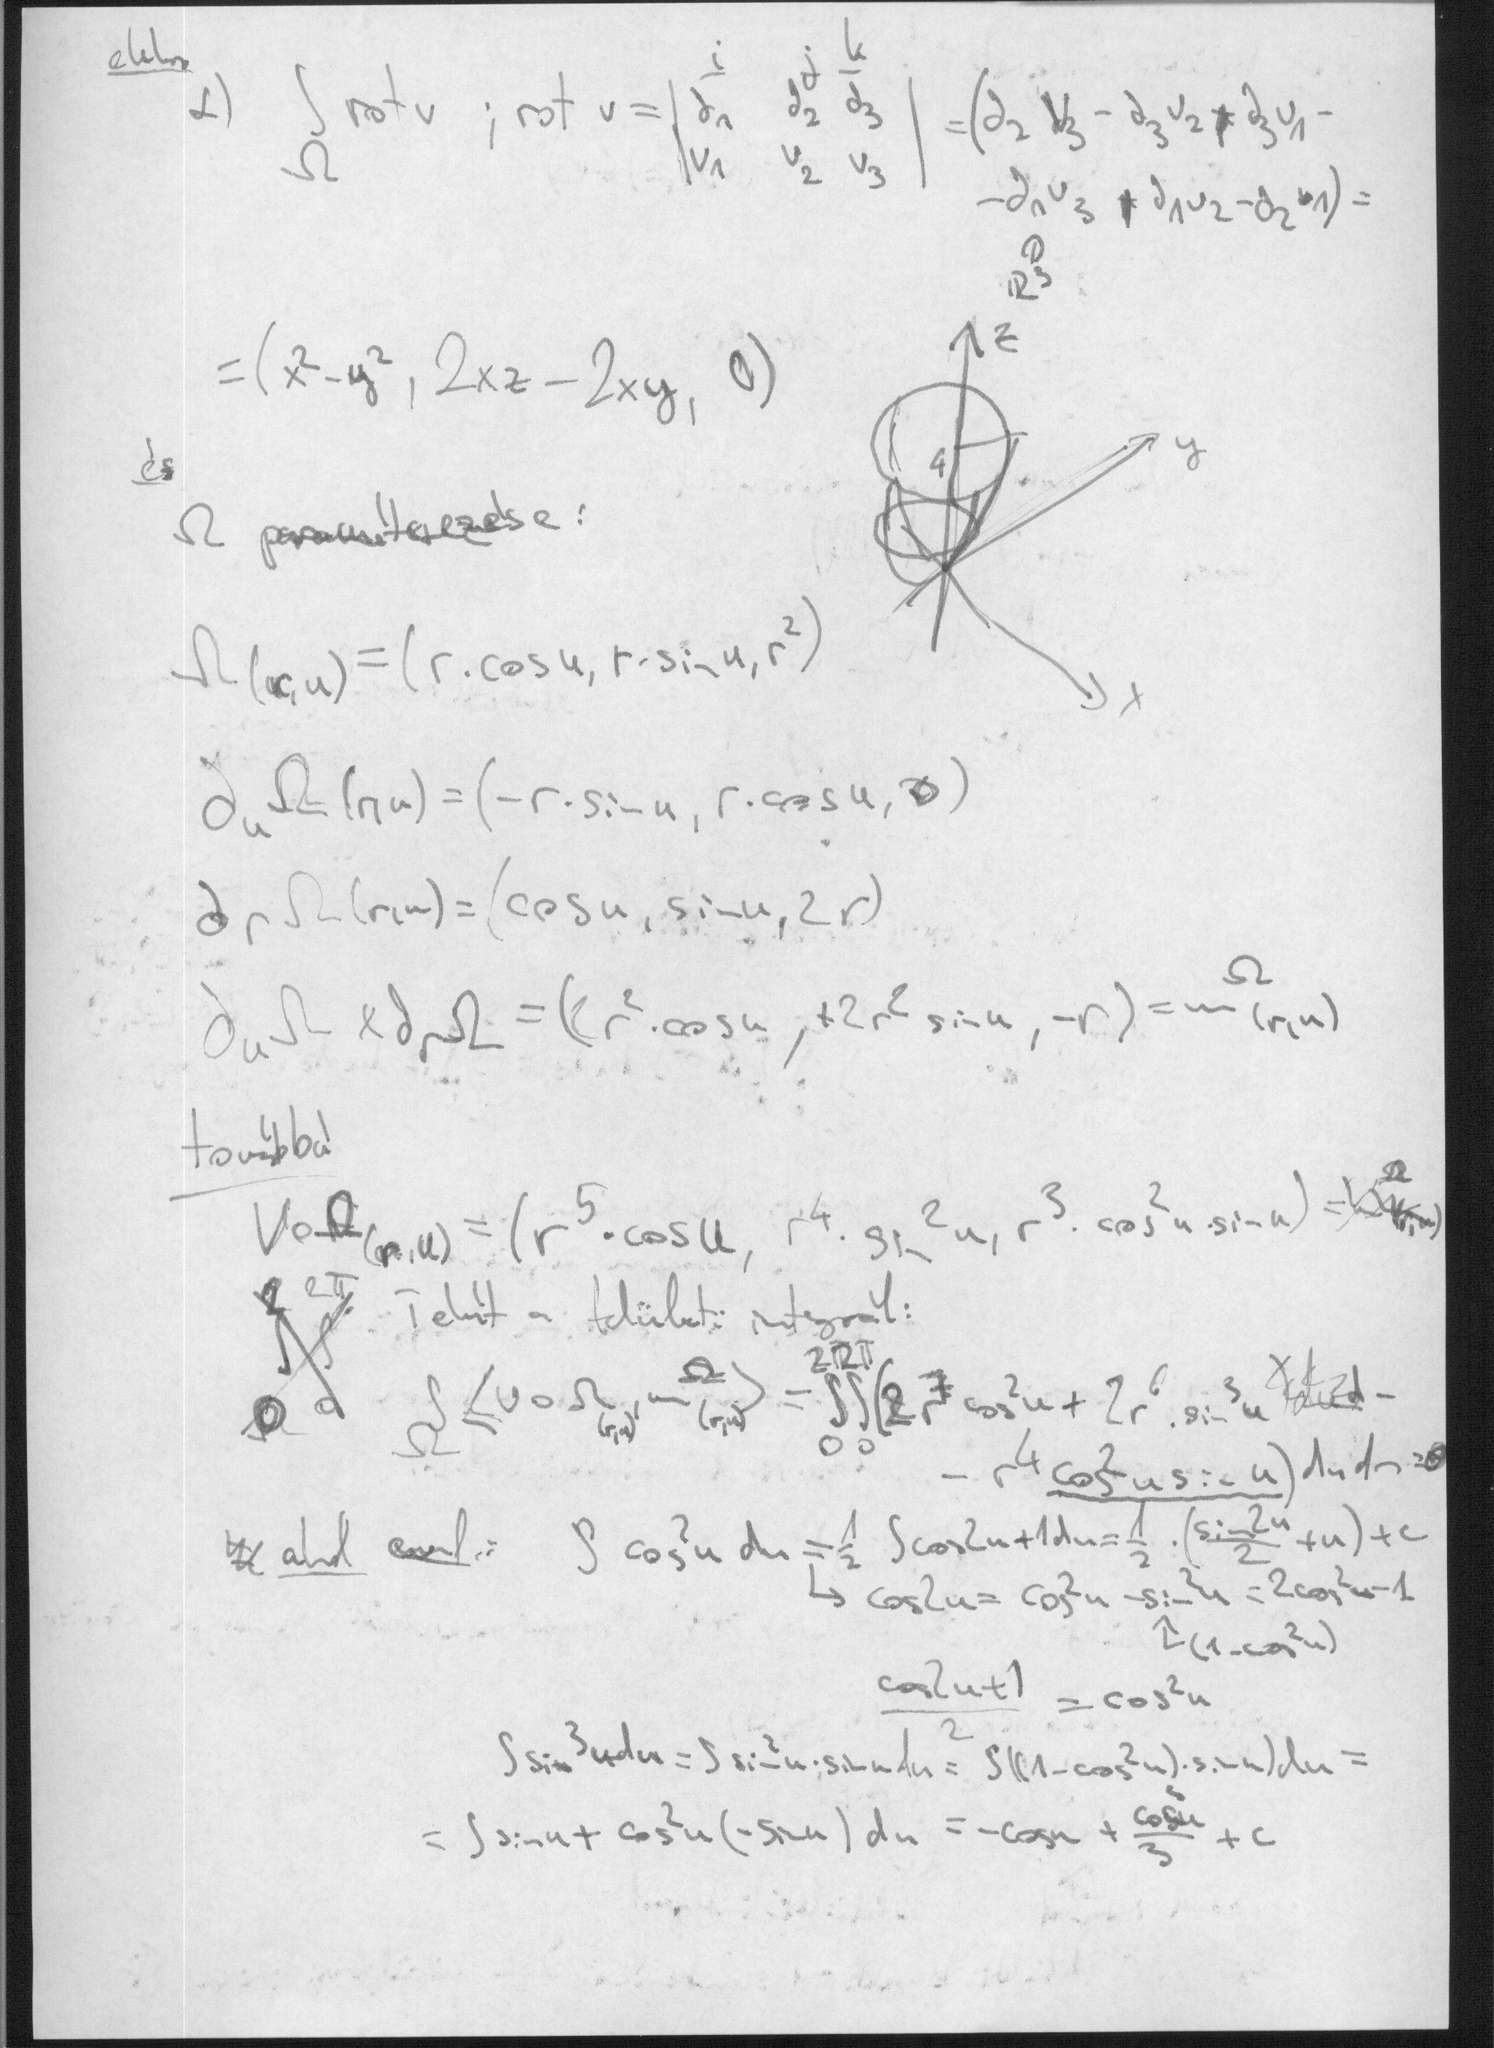 2) ∫_Ω rot v ; rot v = | i j k ; ∂₁ ∂₂ ∂₃ ; v₁ v₂ v₃ | = (∂₂v₃ - ∂₃v₂, ∂₃v₁ -
- ∂₁v₃, ∂₁v₂ - ∂₂v₁) =
R³
= (x² - y², 2xz - 2xy, 0)
z
4
y
x
és
Ω paraméterezése:
Ω(r,u) = (r·cosu, r·sinu, r²)
∂ᵤΩ(r,u) = (-r·sinu, r·cosu, 0)
∂ᵣΩ(r,u) = (cosu, sinu, 2r)
∂ᵤΩ × ∂ᵣΩ = (2r²·cosu, +2r² sinu, -r) = m^Ω(r,u)
továbbá
v∘Ω(r,u) = (r⁵·cosu, r⁴·sin²u, r³·cos²u·sinu) =
2 2π
Tehát a felületi integrál:
∫_Ω ⟨v∘Ω(r,u), m^Ω(r,u)⟩ = ∫₀² ∫₀^2π (2r⁷ cos²u + 2r⁶·sin³u -
- r⁴ cos²u sinu) du dr =
ahol ∫ cos²u du = 1/2 ∫ cos2u + 1 du = 1/2 · (sin2u/2 + u) + c
↳ cos2u = cos²u - sin²u = 2cos²u - 1
↑ (1 - cos²u)
(cos2u + 1)/2 = cos²u
∫ sin³u du = ∫ sin²u·sinu du = ∫ ((1 - cos²u)·sinu) du =
= ∫ sinu + cos²u (-sinu) du = -cosu + cos³u/3 + c